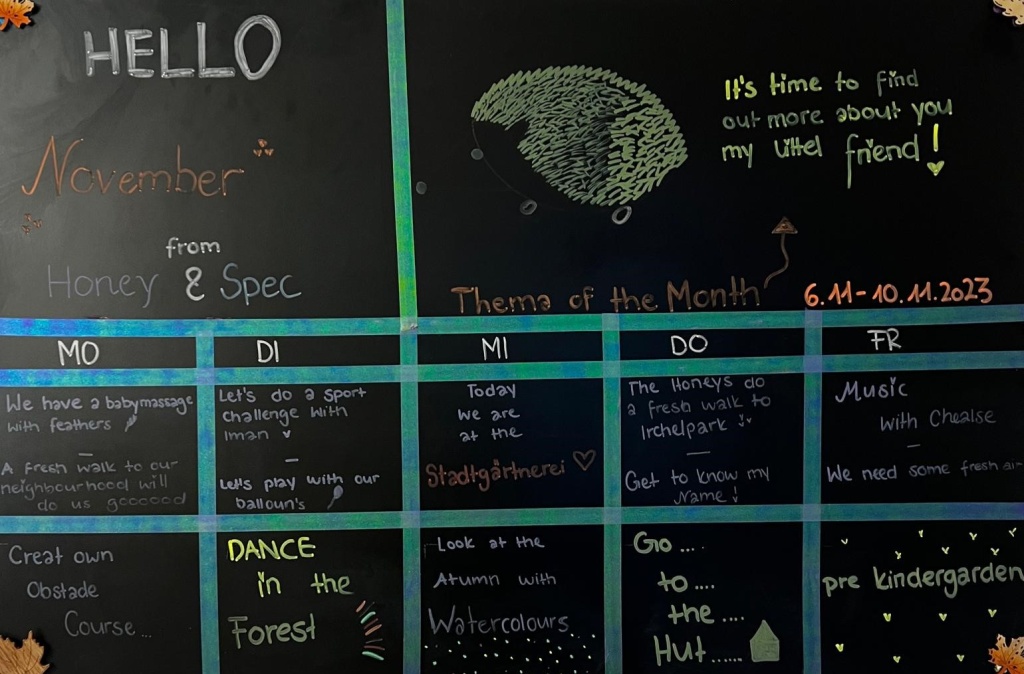 HELLO
November
from
Honey & Spec
It's time to find
out more about you
my littel friend!
Thema of the Month
6.11-10.11.2023
MO
DI
MI
DO
FR
We have a babymassage
with feathers
—
A fresh walk to our
neighbourhood will
do us goooood
Let's do a sport
challenge with
Iman
—
Let's play with our
balloun's
Today
we are
at the
Stadtgärtnerei
The Honeys do
a fresh walk to
Irchelpark
—
Get to know my
Name!
Music
with Chealse
—
We need some fresh air
Creat own
Obstade
Course...
DANCE
in the
Forest
Look at the
Atumn with
Watercolours
Go ....
to ....
the ....
Hut ......
pre kindergarden